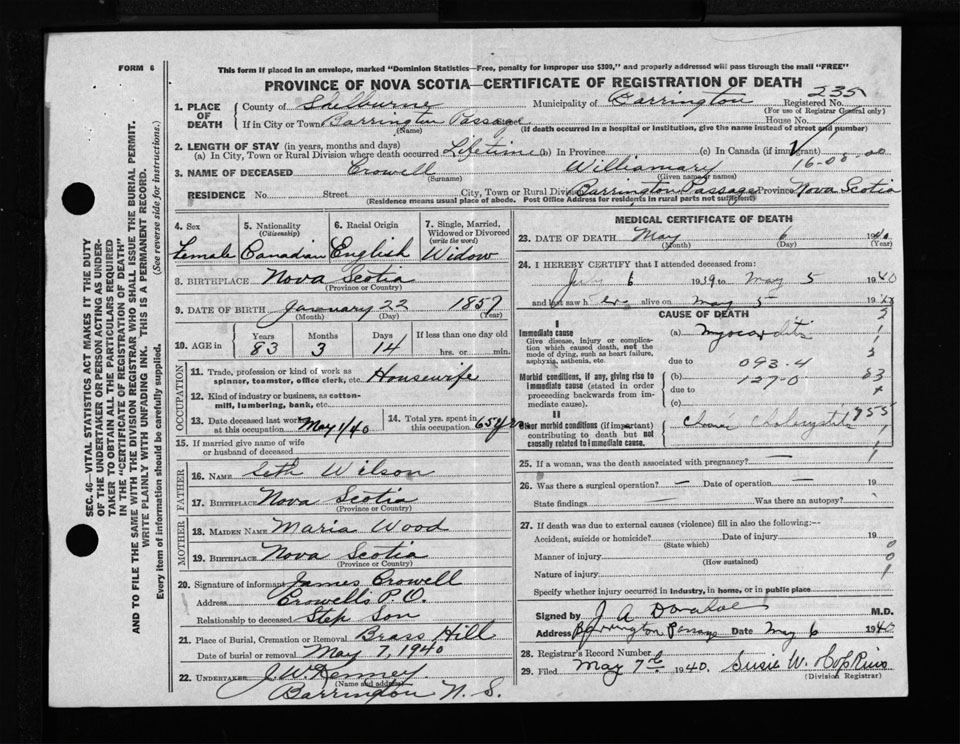 FORM 6
This form if placed in an envelope, marked "Dominion Statistics—Free, penalty for improper use $300," and properly addressed will pass through the mail "FREE"
PROVINCE OF NOVA SCOTIA—CERTIFICATE OF REGISTRATION OF DEATH
235
1. PLACE OF DEATH County of Shelburne Municipality of Barrington Registered No.
(For use of Registrar General only)
If in City or Town Barrington Passage House No.
(Name) (If death occurred in a hospital or institution, give the name instead of street and number)
2. LENGTH OF STAY (in years, months and days)
(a) In City, Town or Rural Division where death occurred Lifetime (b) In Province (c) In Canada (if immigrant)
16-00-00
3. NAME OF DECEASED Crowell Williamary
(Surname) (Given name or names)
RESIDENCE No. Street City, Town or Rural Div. Barrington Passage Province Nova Scotia
(Residence means usual place of abode. Post Office Address for residents in rural parts not sufficient)
4. Sex 5. Nationality (Citizenship) 6. Racial Origin 7. Single, Married, Widowed or Divorced (write the word)
Female Canadian English Widow
8. BIRTHPLACE Nova Scotia
(Province or Country)
9. DATE OF BIRTH January 22 1857
(Month) (Day) (Year)
10. AGE in Years Months Days If less than one day old
83 3 14 hrs. or min.
OCCUPATION
11. Trade, profession or kind of work as spinner, teamster, office clerk, etc. Housewife
12. Kind of industry or business, as cotton-mill, lumbering, bank, etc.
13. Date deceased last worked at this occupation May 1/40 14. Total yrs. spent in this occupation 65 yrs
15. If married give name of wife or husband of deceased
FATHER
16. NAME Seth Wilson
17. BIRTHPLACE Nova Scotia
(Province or Country)
MOTHER
18. MAIDEN NAME Maria Wood
19. BIRTHPLACE Nova Scotia
(Province or Country)
20. Signature of informant James Crowell
Address Crowell's P.O.
Relationship to deceased Step Son
21. Place of Burial, Cremation or Removal Brass Hill
Date of burial or removal May 7, 1940
22. UNDERTAKER J. W. Kenney
(Name and address)
Barrington N. S.
MEDICAL CERTIFICATE OF DEATH
23. DATE OF DEATH May 6 1940
(Month) (Day) (Year)
24. I HEREBY CERTIFY that I attended deceased from:
July 6 1939 to May 5 1940
and last saw her alive on May 5 19
CAUSE OF DEATH
I
Immediate cause (a) Myocarditis
Give disease, injury or complication which caused death, not the mode of dying, such as heart failure, asphyxia, asthenia, etc.
due to 093-4
Morbid conditions, if any, giving rise to immediate cause (stated in order proceeding backwards from immediate cause).
(b) 127-0 83
due to
(c)
II
Other morbid conditions (if important) contributing to death but not causally related to immediate cause.
Cholecystitis 955
25. If a woman, was the death associated with pregnancy? —
26. Was there a surgical operation? — Date of operation — 19
State findings Was there an autopsy?
27. If death was due to external causes (violence) fill in also the following:—
Accident, suicide or homicide? Date of injury 19
(State which)
Manner of injury
(How sustained)
Nature of injury
Specify whether injury occurred in industry, in home, or in public place
Signed by J A M.D.
Address Barrington Passage Date May 6 1940
28. Registrar's Record Number
29. Filed May 7th 1940. Susie W. Hopkins
(Division Registrar)
SEC. 46—VITAL STATISTICS ACT MAKES IT THE DUTY
OF THE UNDERTAKER OR PERSON ACTING AS UNDER-
TAKER TO OBTAIN ALL THE PARTICULARS REQUIRED
IN THE "CERTIFICATE OF REGISTRATION OF DEATH"
AND TO FILE THE SAME WITH THE DIVISION REGISTRAR WHO SHALL ISSUE THE BURIAL PERMIT.
WRITE PLAINLY WITH UNFADING INK. THIS IS A PERMANENT RECORD.
Every item of information should be carefully supplied. (See reverse side for instructions.)